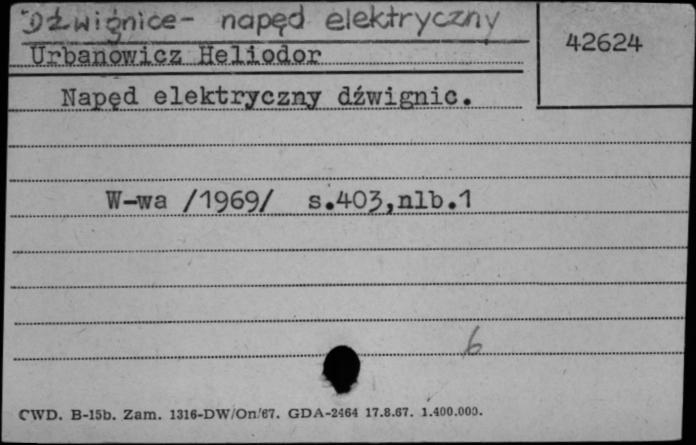 Dźwignice - napęd elektryczny
42624
Urbanowicz Heliodor
Napęd elektryczny dźwignic.
W-wa /1969/ s.403,nlb.1
6
CWD. B-15b. Zam. 1316-DW/On/67. GDA-2464 17.8.67. 1.400.000.